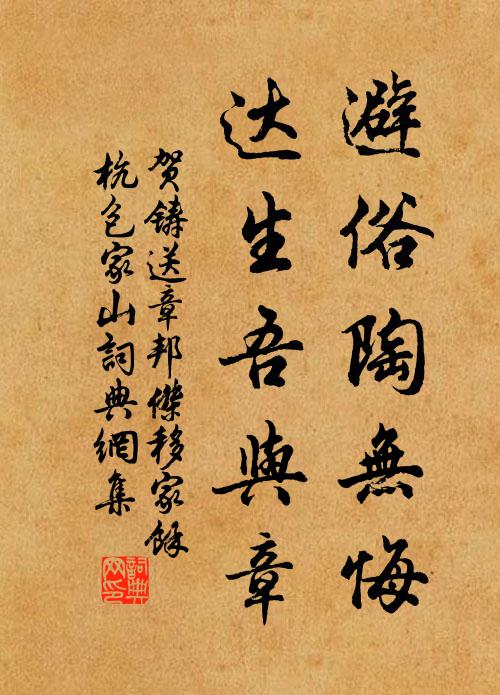 避俗陶無悔
达生吾與章
贺鑄送章邦傑移家餘
杭色家山詞典網集
詞典
网印